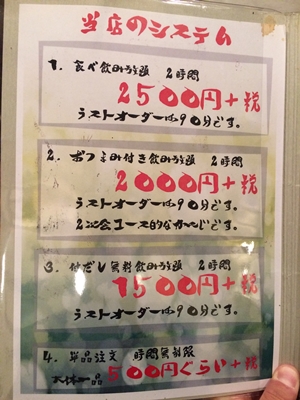 当店のシステム
1. 食べ飲み放題 2時間
2500円+税
ラストオーダーは90分です。
2. おつまみ付き飲み放題 2時間
2000円+税
ラストオーダーは90分です。
2次会コース的なカードです。
3. 付だし無料飲み放題 2時間
1500円+税
ラストオーダーは90分です。
4. 単品注文 時間無制限
大体一品 500円ぐらい+税